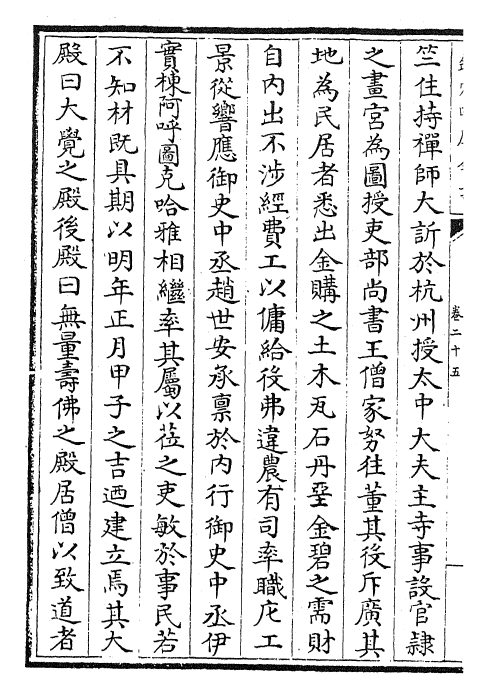 卷二十五
竺住持禪師大訢於杭州授太中大夫主寺事設官隸
之畫宮為圖授吏部尚書王僧家努往董其役斥廣其
地為民居者悉出金購之土木瓦石丹堊金碧之需財
自內出不涉經費工以傭給役弗違農有司率職庀工
景從響應御史中丞趙世安承稟於內行御史中丞伊
實棟阿呼圖克哈雅相繼率其屬以莅之吏敏於事民若
不知材既具期以明年正月甲子之吉迺建立焉其大
殿曰大覺之殿後殿曰無量壽佛之殿居僧以致道者